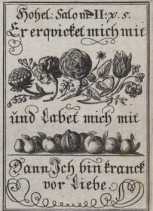 Hohel: Salom II: v. 5.
Er erquicket mich mit
und Labet mich mit
Dann Ich bin kranck
vor Liebe.